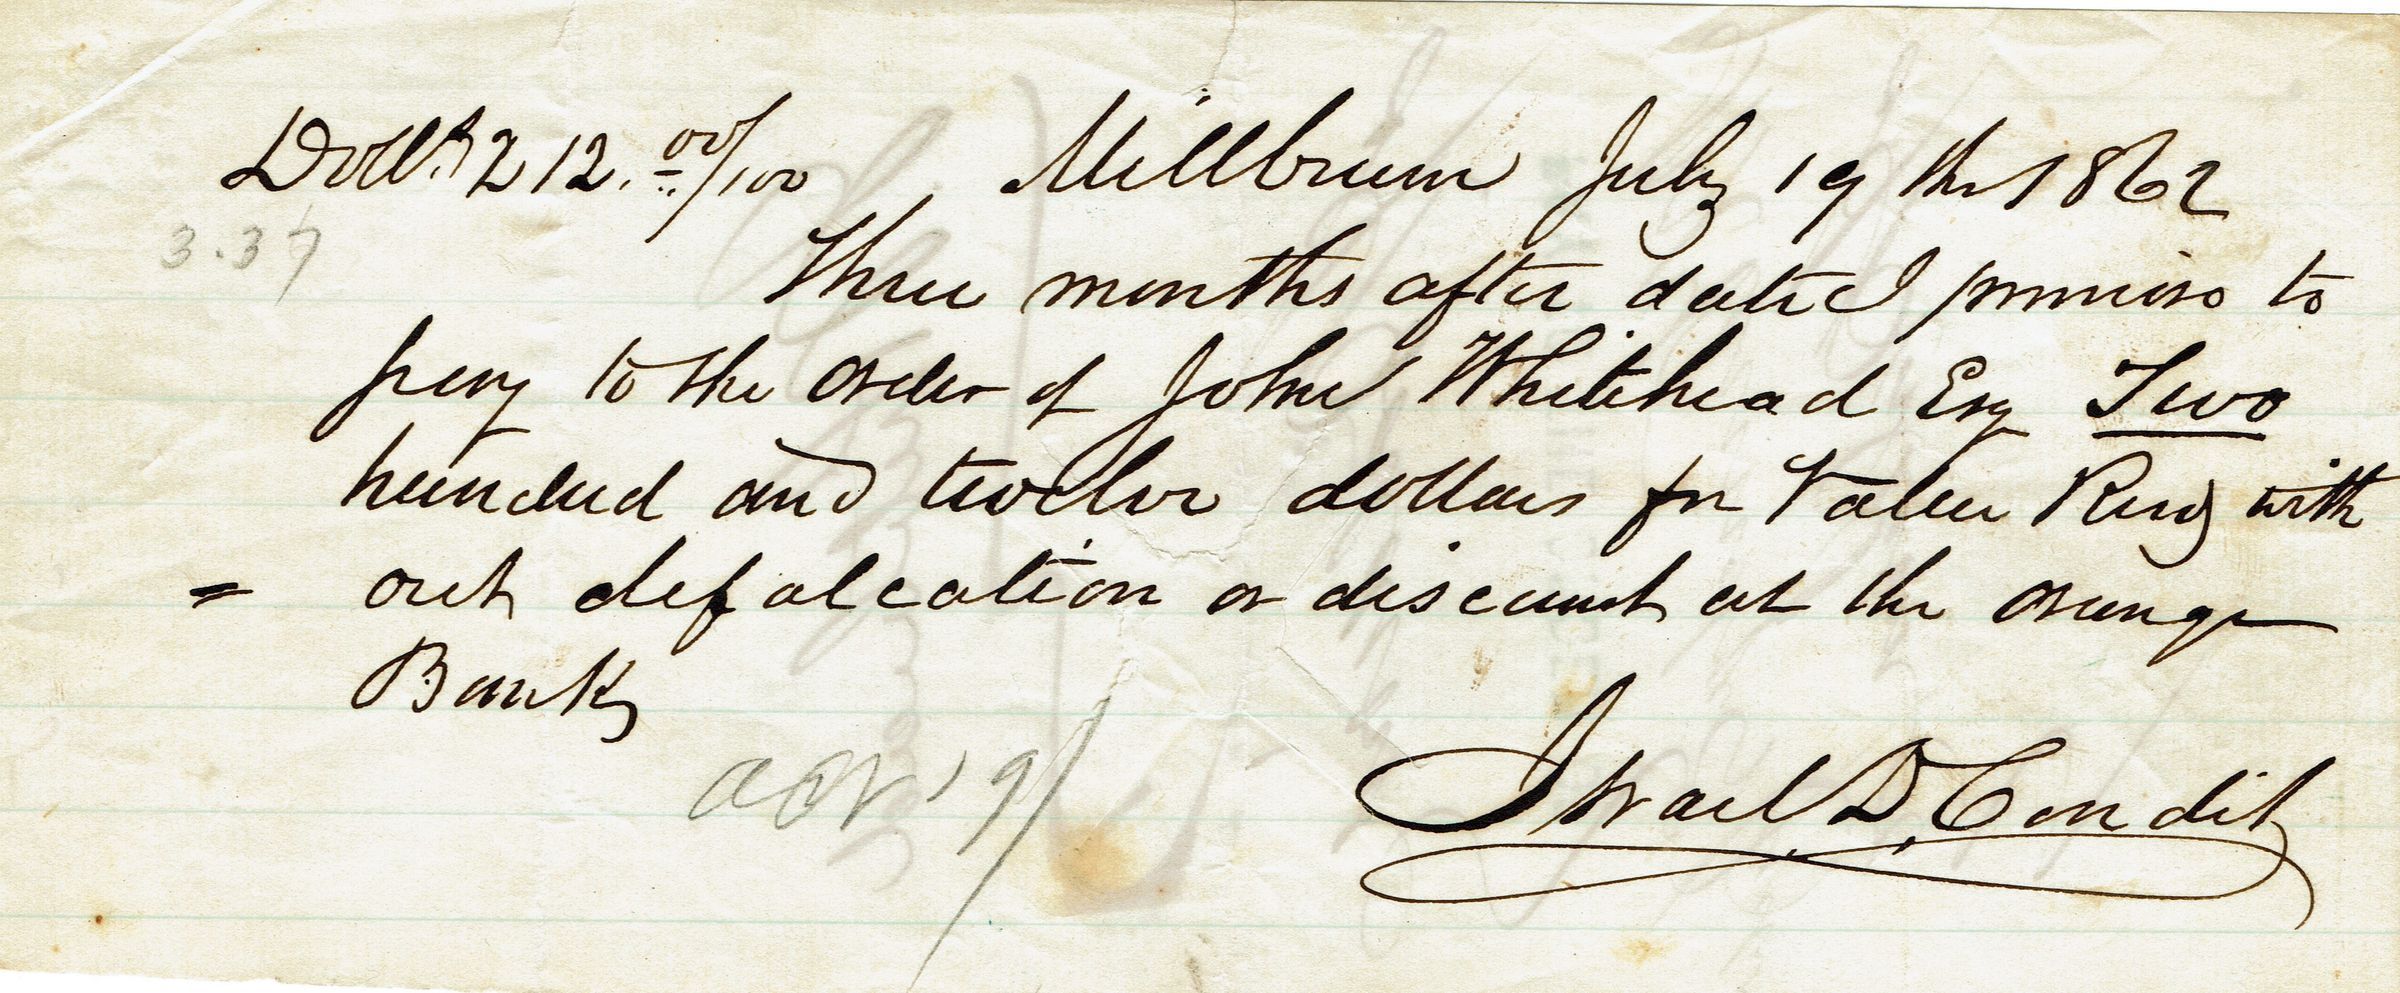 Dolls 212.00/100 Millburn July 19th 1862
3.37
Three months after date I promise to
pay to the order of John Whitehead Esq Two
hundred and twelve dollars for Value Recd with
= out defalcation or discount at the Orange
Bank
19/
Israel D. Condit